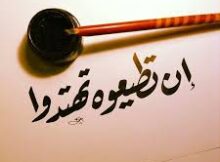 إن تطيعوه تهتدوا